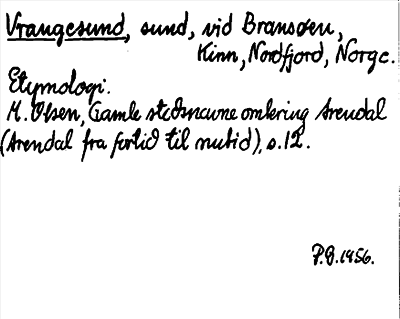 Vrangesund, sund, vid Bransøen,
Kinn, Nordfjord, Norge.
Etymologi.
M. Olsen, Gamle stedsnavne omkring Arendal
(Arendal fra fortid til nutid), s. 12.
P.B. 1956.